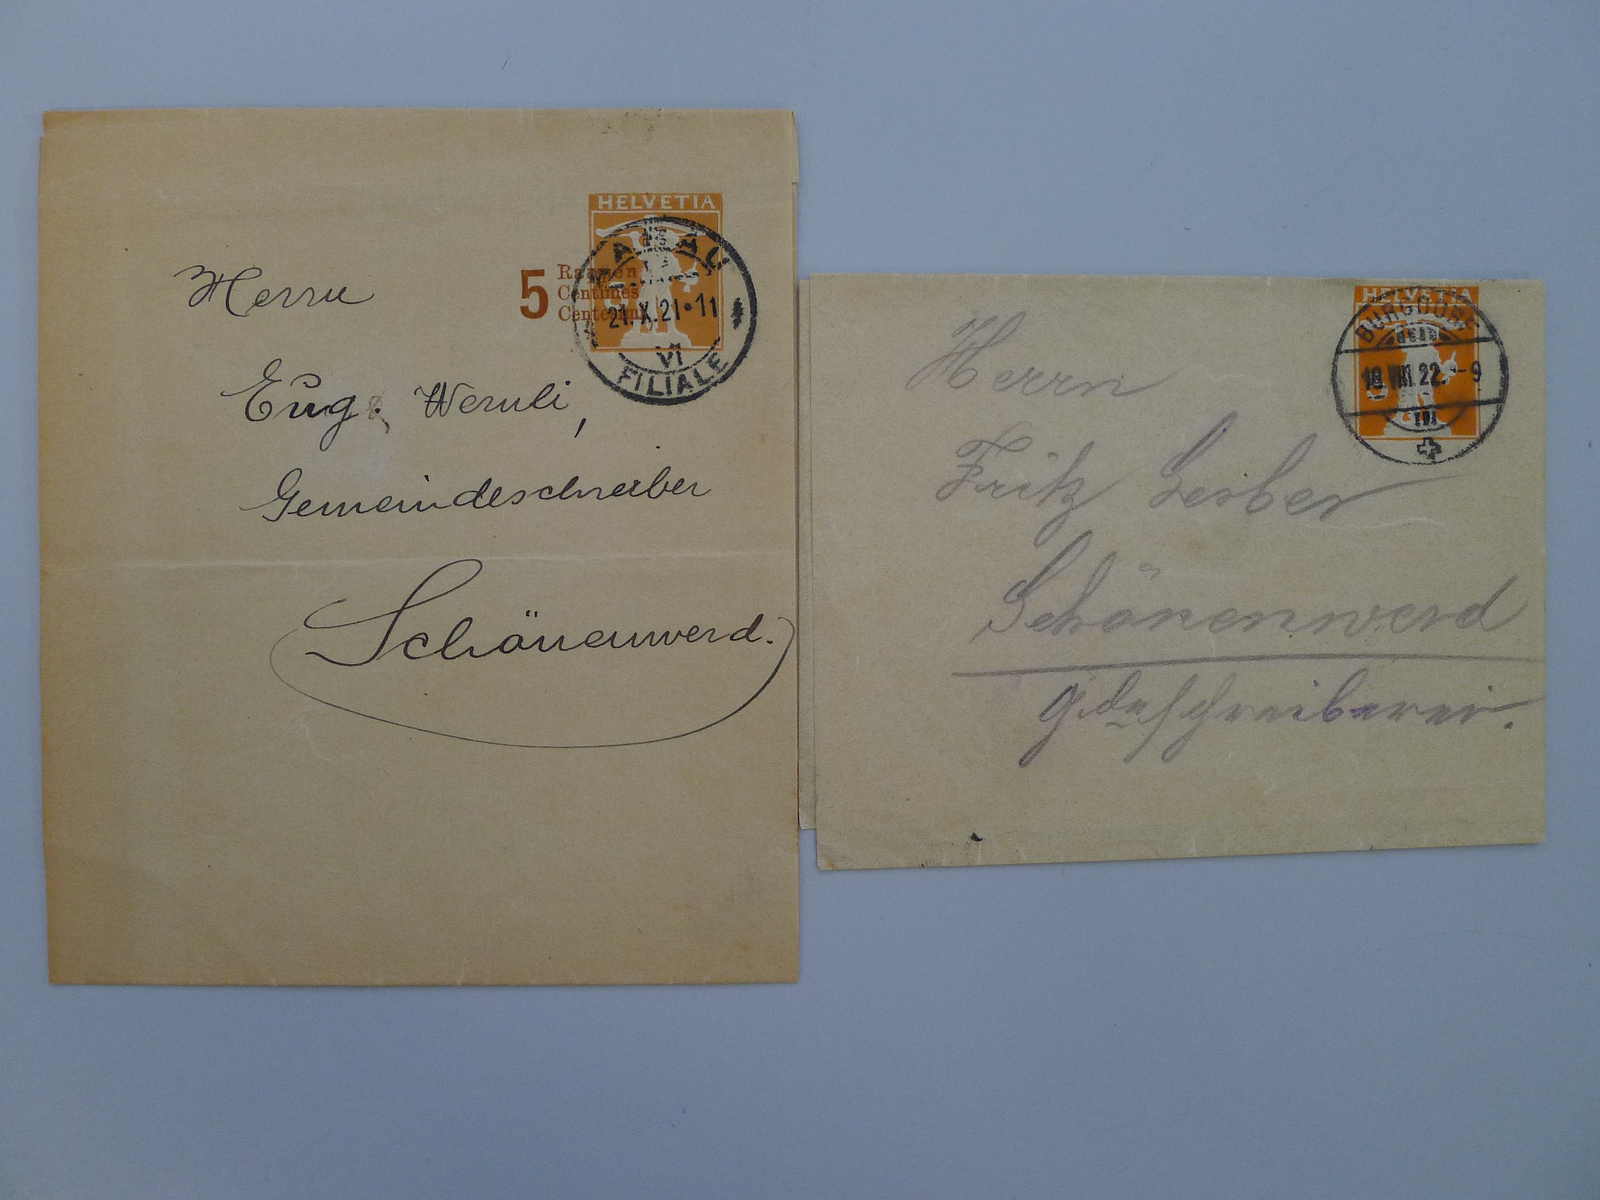 HELVETIA
5 Rappen
Centimes
Centesimi
AARAU
21.X.21·11
VI
FILIALE
Herrn
Eug. Wernli,
Gemeindeschreiber
Schönenwerd.
HELVETIA
BURGDORF
VIII.22.-9
Herrn
Fritz Gerber
Schönenwerd
Gdeschreiberei.